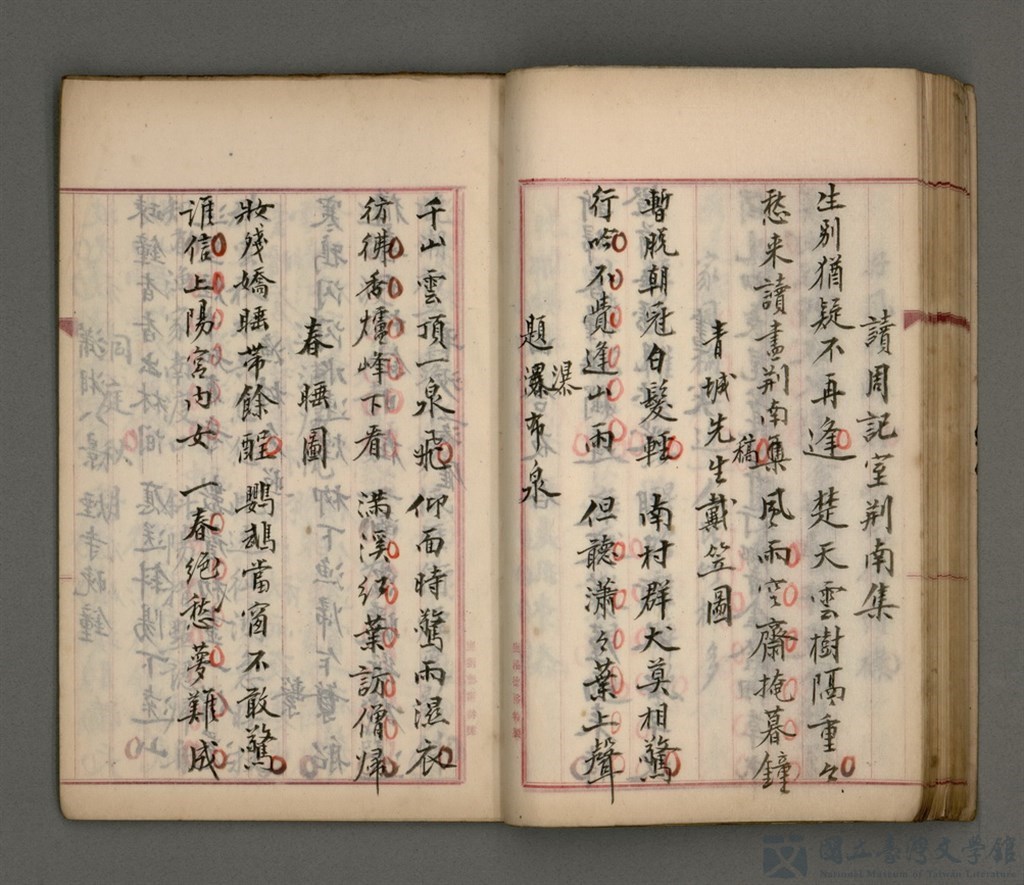 讀周記室荆南集
生别猶疑不再逢 楚天雲樹隔重々
愁来讀盡荆南集稿 風雨空齋掩暮鐘
青城先生戴笠圖
暫脱朝冠白髮輕 南村群犬莫相驚
行吟不覺逢山雨 但聽瀟々葉上聲
題瀑布泉
瀑
千山雲頂一泉飛 仰面時驚雨濕衣
彷彿香爐峰下看 满溪红葉訪僧歸
春睡圖
妝殘嬌睡帶餘酲 鸚鵡當窗不敢驚
誰信上陽宫内女 一春絕愁夢難成
國立臺灣文學館
National Museum of Taiwan Literature